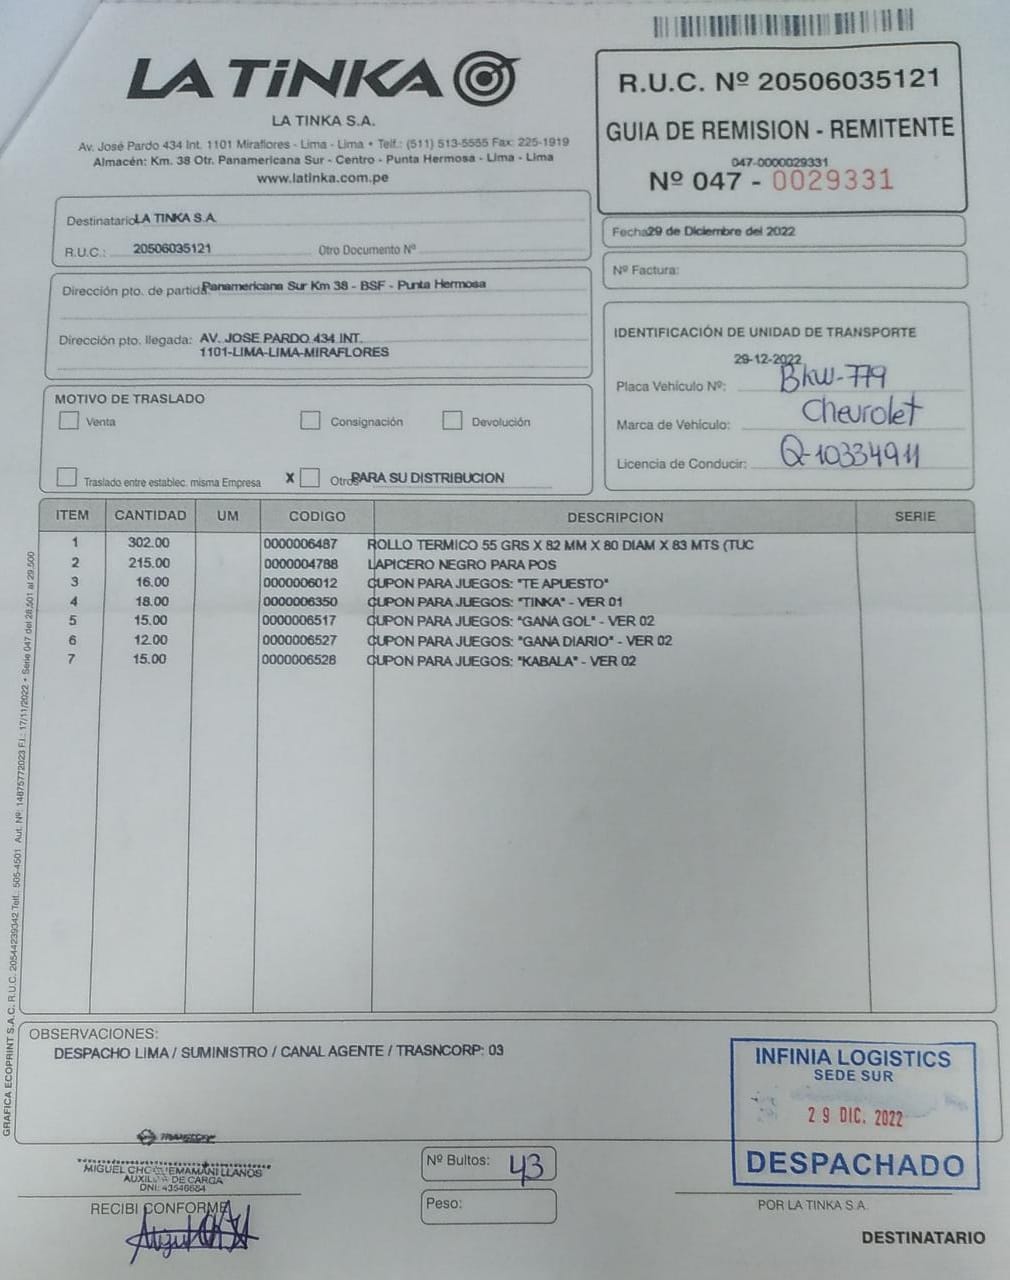 LA TiNKA
LA TINKA S.A.
Av. José Pardo 434 Int. 1101 Miraflores - Lima - Lima • Telf.: (511) 513-5555 Fax: 225-1919
Almacén: Km. 38 Otr. Panamericana Sur - Centro - Punta Hermosa - Lima - Lima
www.latinka.com.pe
R.U.C. Nº 20506035121
GUIA DE REMISION - REMITENTE
047-0000029331
Nº 047 - 0029331
Destinatario LA TINKA S.A.
R.U.C.: 20506035121 Otro Documento Nº
Fecha 29 de Diciembre del 2022
Nº Factura:
Dirección pto. de partida Panamericana Sur Km 38 - BSF - Punta Hermosa
Dirección pto. llegada: AV. JOSE PARDO 434 INT.
1101-LIMA-LIMA-MIRAFLORES
IDENTIFICACIÓN DE UNIDAD DE TRANSPORTE
29-12-2022
Placa Vehículo Nº: BKW-779
Marca de Vehículo: Chevrolet
Licencia de Conducir: Q-10334911
MOTIVO DE TRASLADO
Venta Consignación Devolución
Traslado entre establec. misma Empresa X Otros PARA SU DISTRIBUCION
ITEM CANTIDAD UM CODIGO DESCRIPCION SERIE
1 302.00 0000006487 ROLLO TERMICO 55 GRS X 82 MM X 80 DIAM X 83 MTS (TUC
2 215.00 0000004788 LAPICERO NEGRO PARA POS
3 16.00 0000006012 CUPON PARA JUEGOS: "TE APUESTO"
4 18.00 0000006350 CUPON PARA JUEGOS: "TINKA" - VER 01
5 15.00 0000006517 CUPON PARA JUEGOS: "GANA GOL" - VER 02
6 12.00 0000006527 CUPON PARA JUEGOS: "GANA DIARIO" - VER 02
7 15.00 0000006528 CUPON PARA JUEGOS: "KABALA" - VER 02
GRAFICA ECOPRINT S.A.C. R.U.C. 20544239042 Telf.: 505-4501 Aut. Nº: 14875772023 F.I.: 17/11/2022 • Serie 047 del 28,501 al 29,500
OBSERVACIONES:
DESPACHO LIMA / SUMINISTRO / CANAL AGENTE / TRASNCORP: 03
INFINIA LOGISTICS
SEDE SUR
29 DIC. 2022
DESPACHADO
MIGUEL CHOQUEMAMANI LLANOS
AUXILIAR DE CARGA
DNI: 43546684
RECIBI CONFORME
Nº Bultos: 43
Peso:
POR LA TINKA S.A.
DESTINATARIO